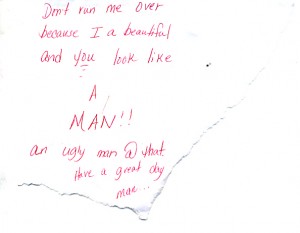 Don't run me over
because I a beautiful
and you look like
A
MAN!!
an ugly man @ that.
Have a great day
man...